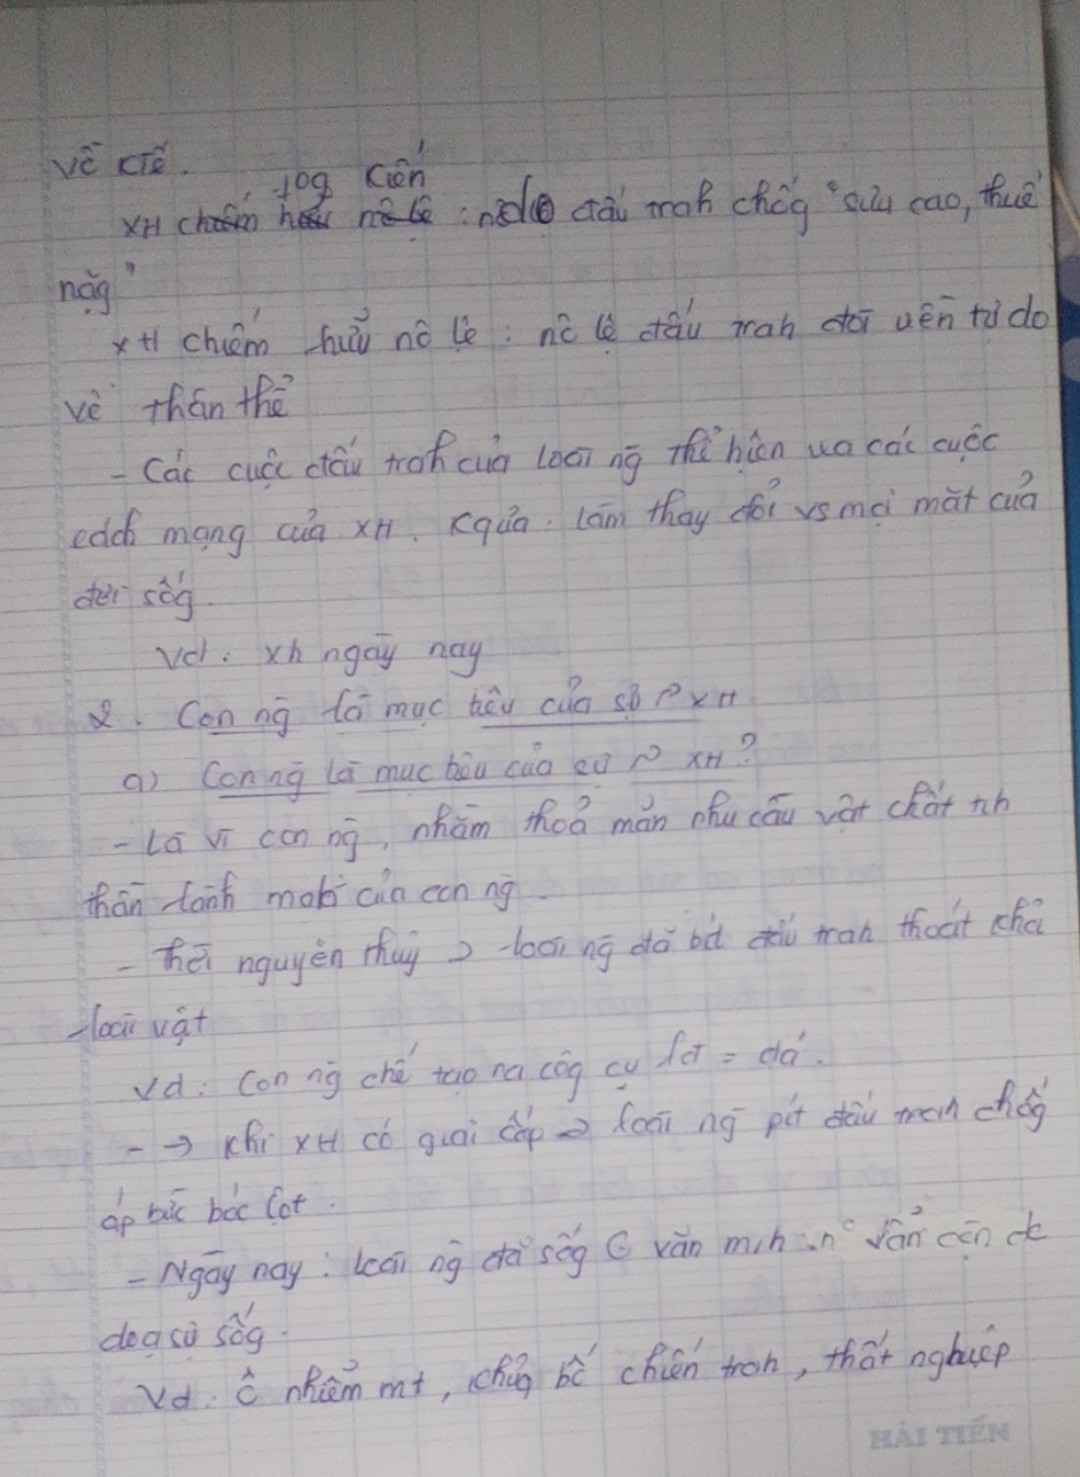 về ktế.
pog kiến
XH chiếm hữu nô lệ : nô lệ đấu trah chốg "sưu cao, thuế
nặg"
XH chiếm hữu nô lệ : nô lệ đấu trah đòi uền tự do
về thân thể
- Các cuộc đấu trah của loài ng̃ thể hiện ua các cuộc
cách mạng của XH. Kqủa : làm thay đổi vs mọi mặt của
đời sốg.
Vd : xh ngày nay
2. Con ng̃ là mục tiêu của sự P XH
a) Con ng̃ là mục tiêu của sự P XH ?
- Là vì con ng̃, nhằm thoả mãn nhu cầu vật chất tih
thần lành mah của con ng̃.
- Thời nguyên thuỷ loài ng̃ đã bít đấu trah thoát khỏi
loài vật
Vd : Con ng̃ chế tạo ra côg cụ lđ = đá.
- → Khi XH có giai cấp → loài ng̃ pít đấu trah chốg
áp bức bóc lột.
- Ngày nay : loài ng̃ đã sốg văn mih n° vẫn còn đe
doạ sự sốg.
Vd : Ô nhiễm mt, khủg bố chiến trah, thất nghiệp
HẢI TIẾN